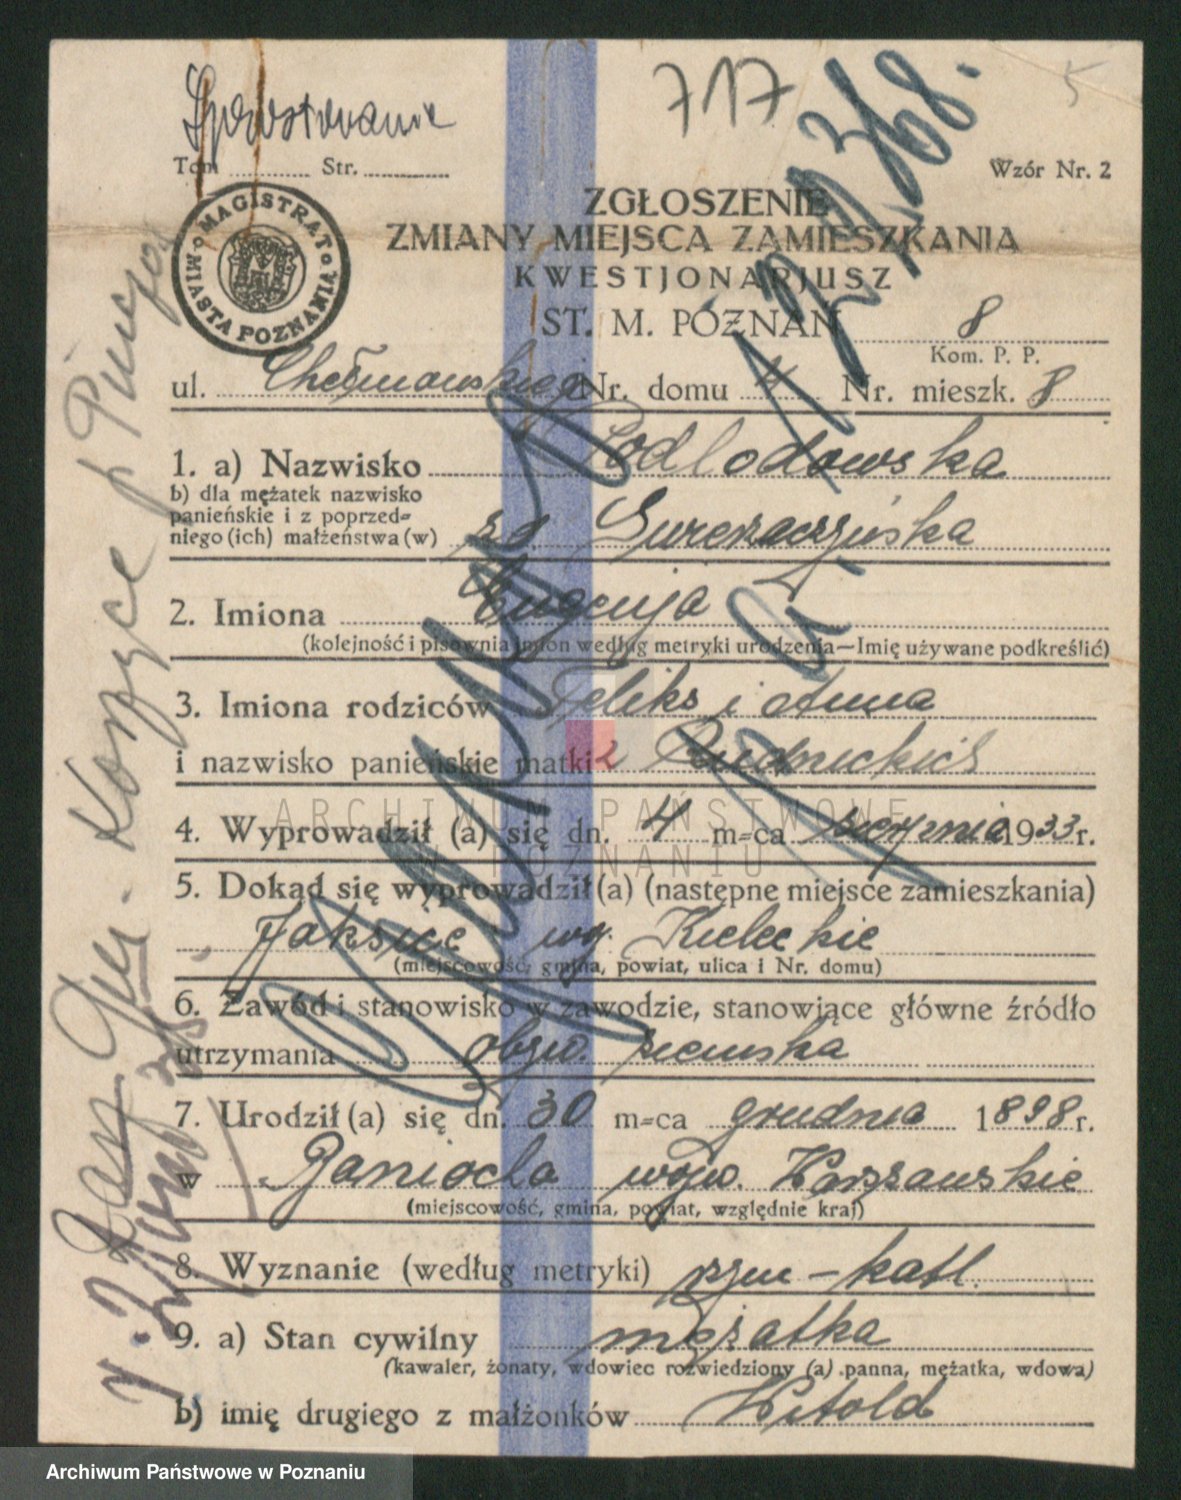 Sprostowanie
717
5
Tom ........ Str. ........
Wzór Nr. 2
MAGISTRAT MIASTA POZNANIA
ZGŁOSZENIE
ZMIANY MIEJSCA ZAMIESZKANIA
KWESTJONARJUSZ
ST. M. POZNAŃ 8
Kom. P. P.
ul. Chełmońskiego Nr. domu 4 Nr. mieszk. 8
1. a) Nazwisko Podlodowska
b) dla mężatek nazwisko
panieńskie i z poprzed=
niego (ich) małżeństwa (w) zd.
2. Imiona Eugenja
(kolejność i pisownia imion według metryki urodzenia—Imię używane podkreślić)
3. Imiona rodziców Feliks i Anna
i nazwisko panieńskie matki z Rudnickich
4. Wyprowadził (a) się dn. 4 m=ca sierpnia 1933 r.
5. Dokąd się wyprowadził(a) (następne miejsce zamieszkania)
Jaksice woj. Kieleckie
(miejscowość, gmina, powiat, ulica i Nr. domu)
6. Zawód i stanowisko w zawodzie, stanowiące główne źródło
utrzymania obyw. ziemska
7. Urodził(a) się dn. 30 m=ca grudnia 1898 r.
w Baniocha wojw. Warszawskie
(miejscowość, gmina, powiat, względnie kraj)
8. Wyznanie (według metryki) rzym-katl.
9. a) Stan cywilny mężatka
(kawaler, żonaty, wdowiec rozwiedziony (a) panna, mężatka, wdowa)
b) imię drugiego z małżonków Witold
ARCHIWUM PAŃSTWOWE
W POZNANIU
Archiwum Państwowe w Poznaniu